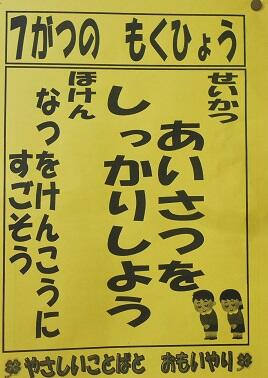 7がつの もくひょう
せいかつ
あいさつを
しっかりしよう
ほけん
なつをけんこうに
すごそう
やさしいことばと おもいやり